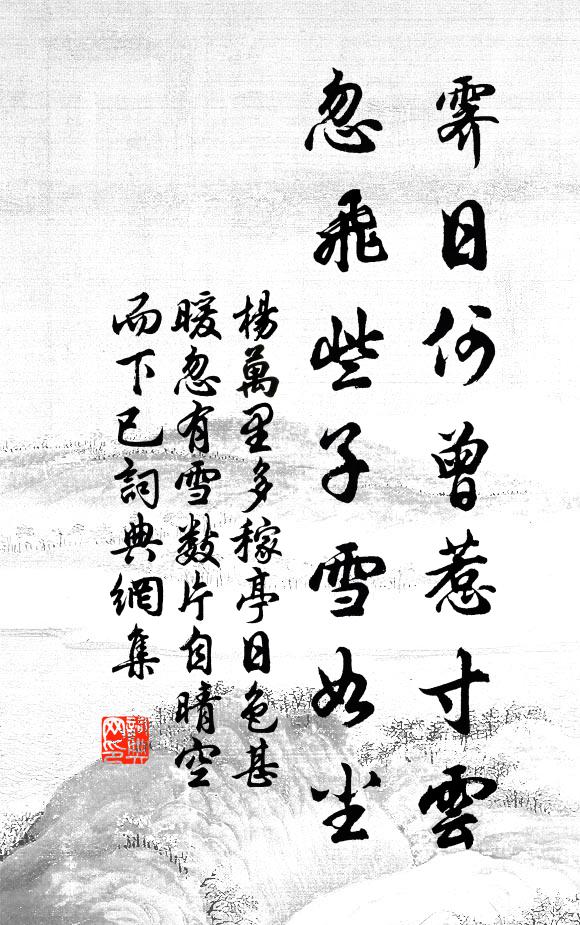 霽日何曾惹寸雲
忽飛些子雪如尘
楊萬里多稼亭日色甚
暖忽有雪数片自晴空
而下已詞典網集
詞典网印